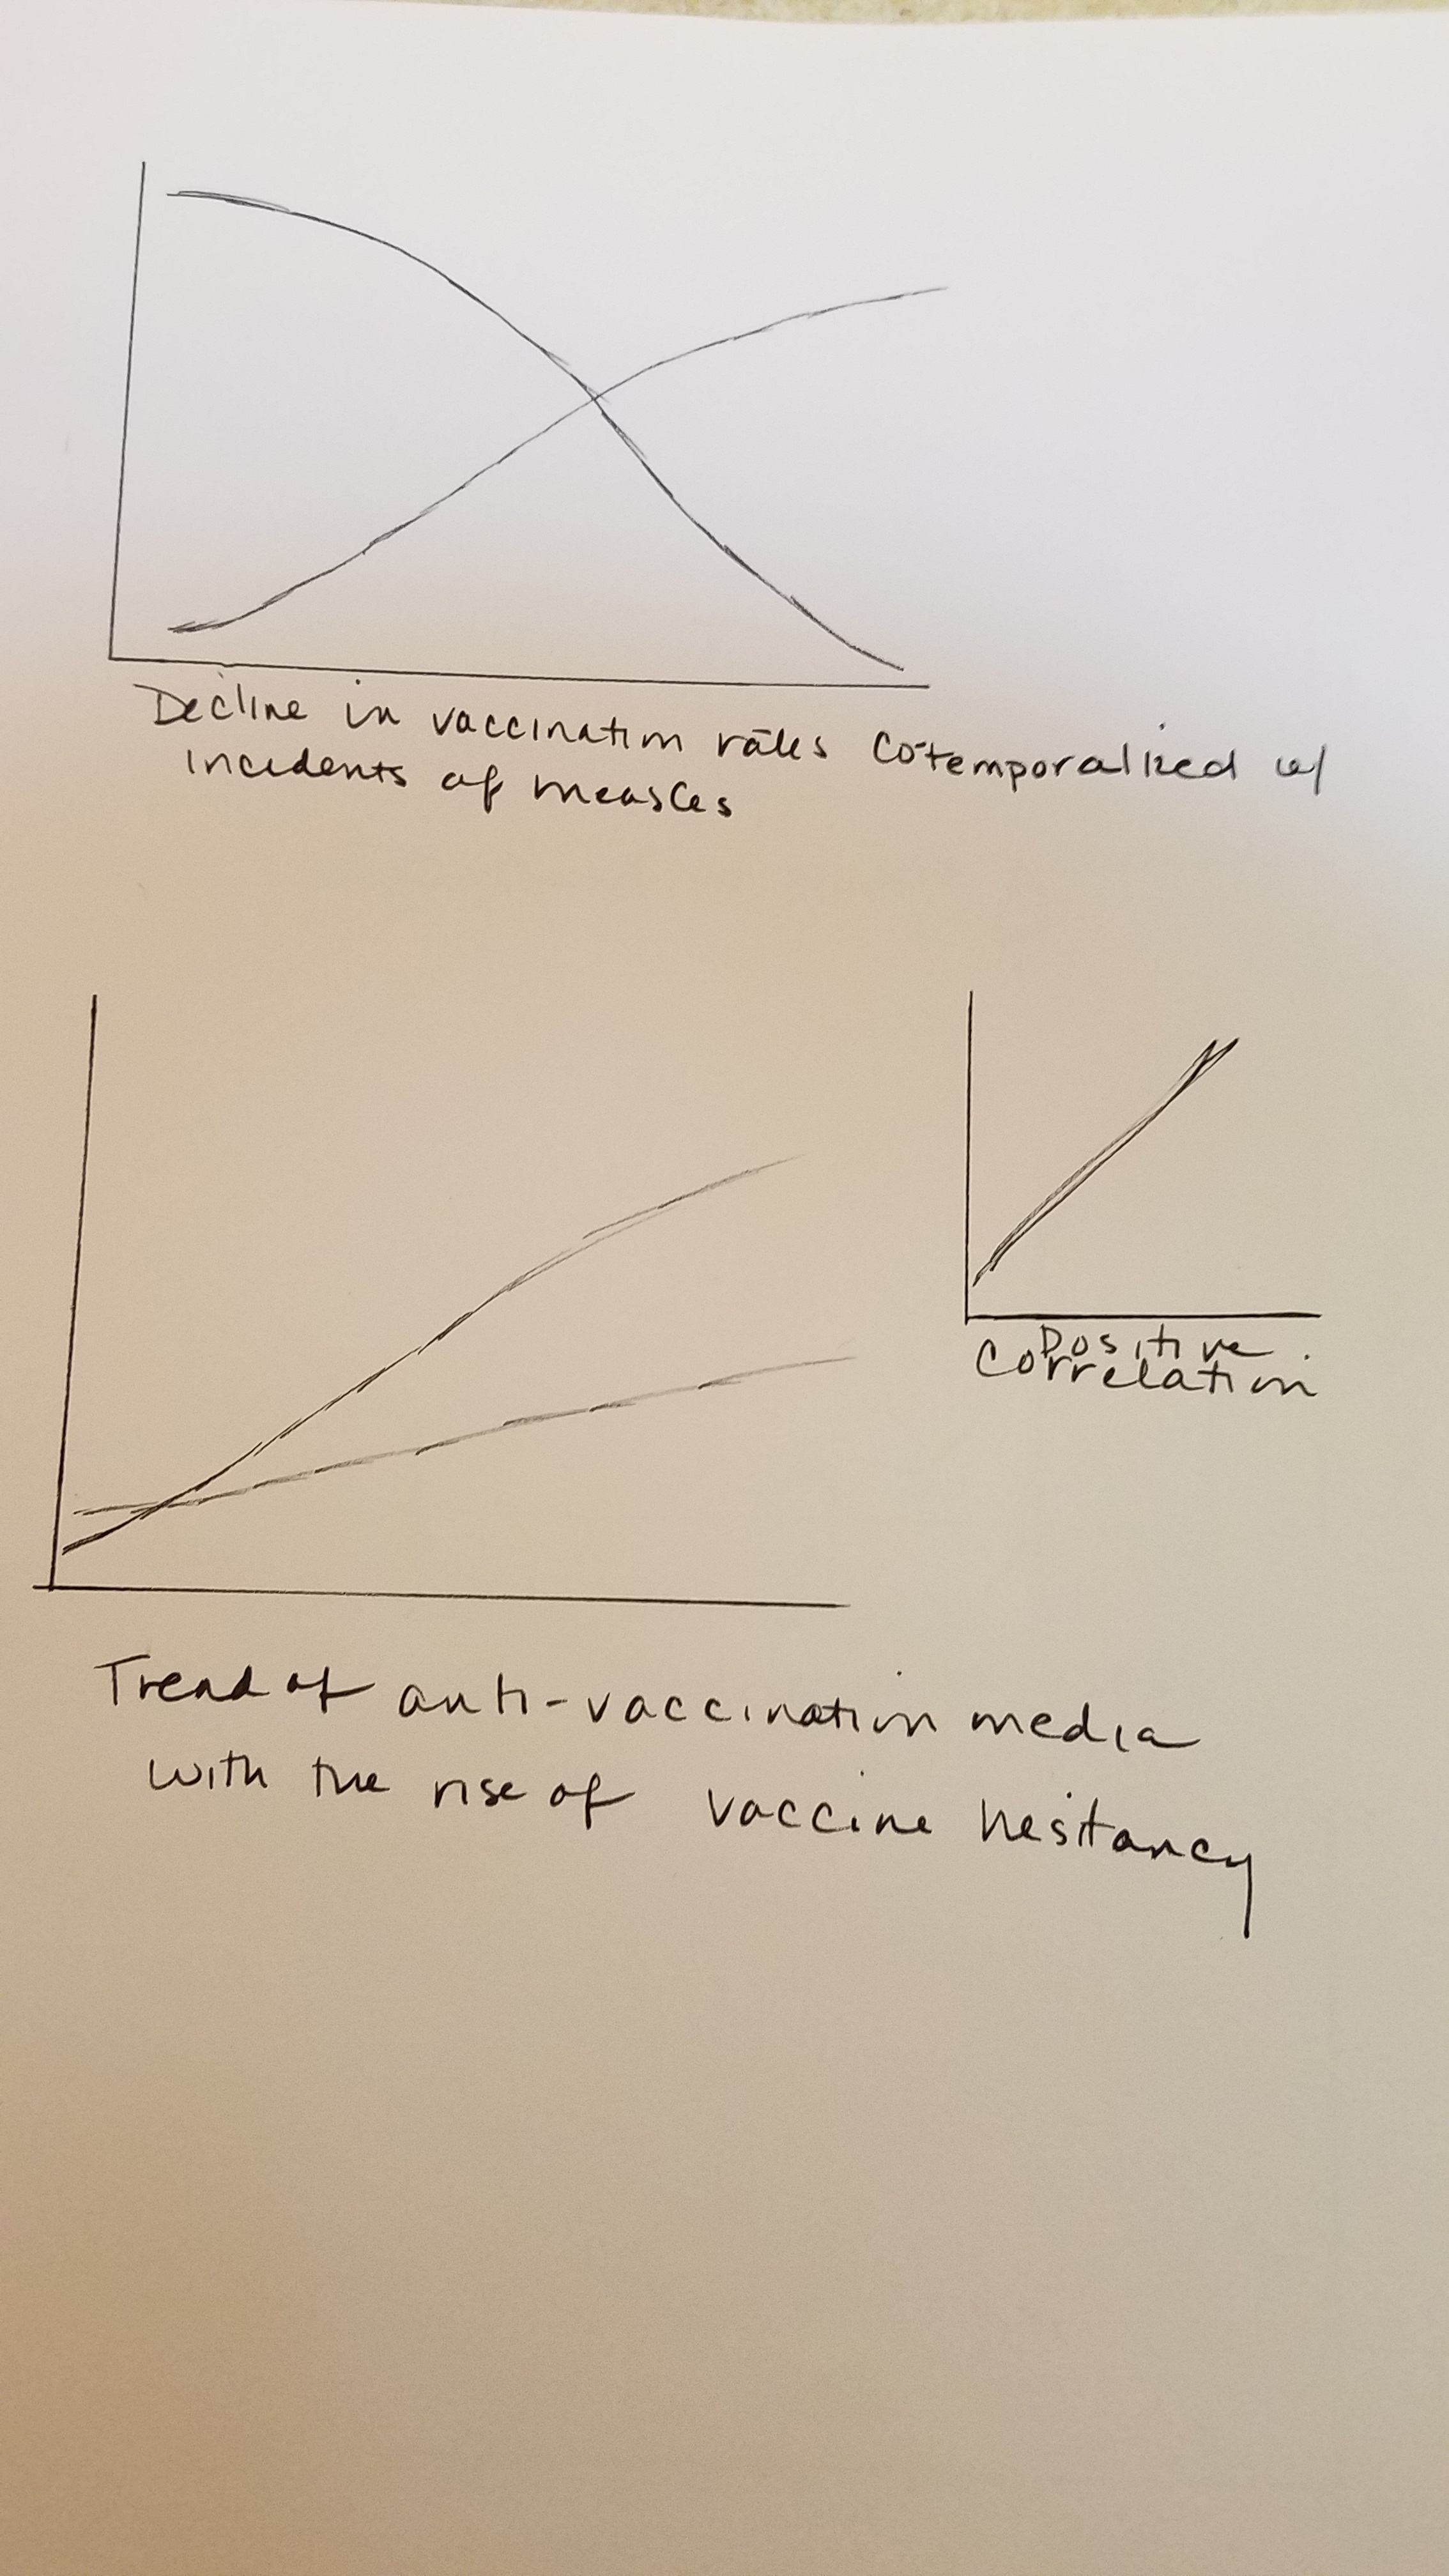 Decline in vaccination rates cotemporalized w/
incidents of measles
Positive
Correlation
Trend of anti-vaccination media
with the rise of vaccine hesitancy